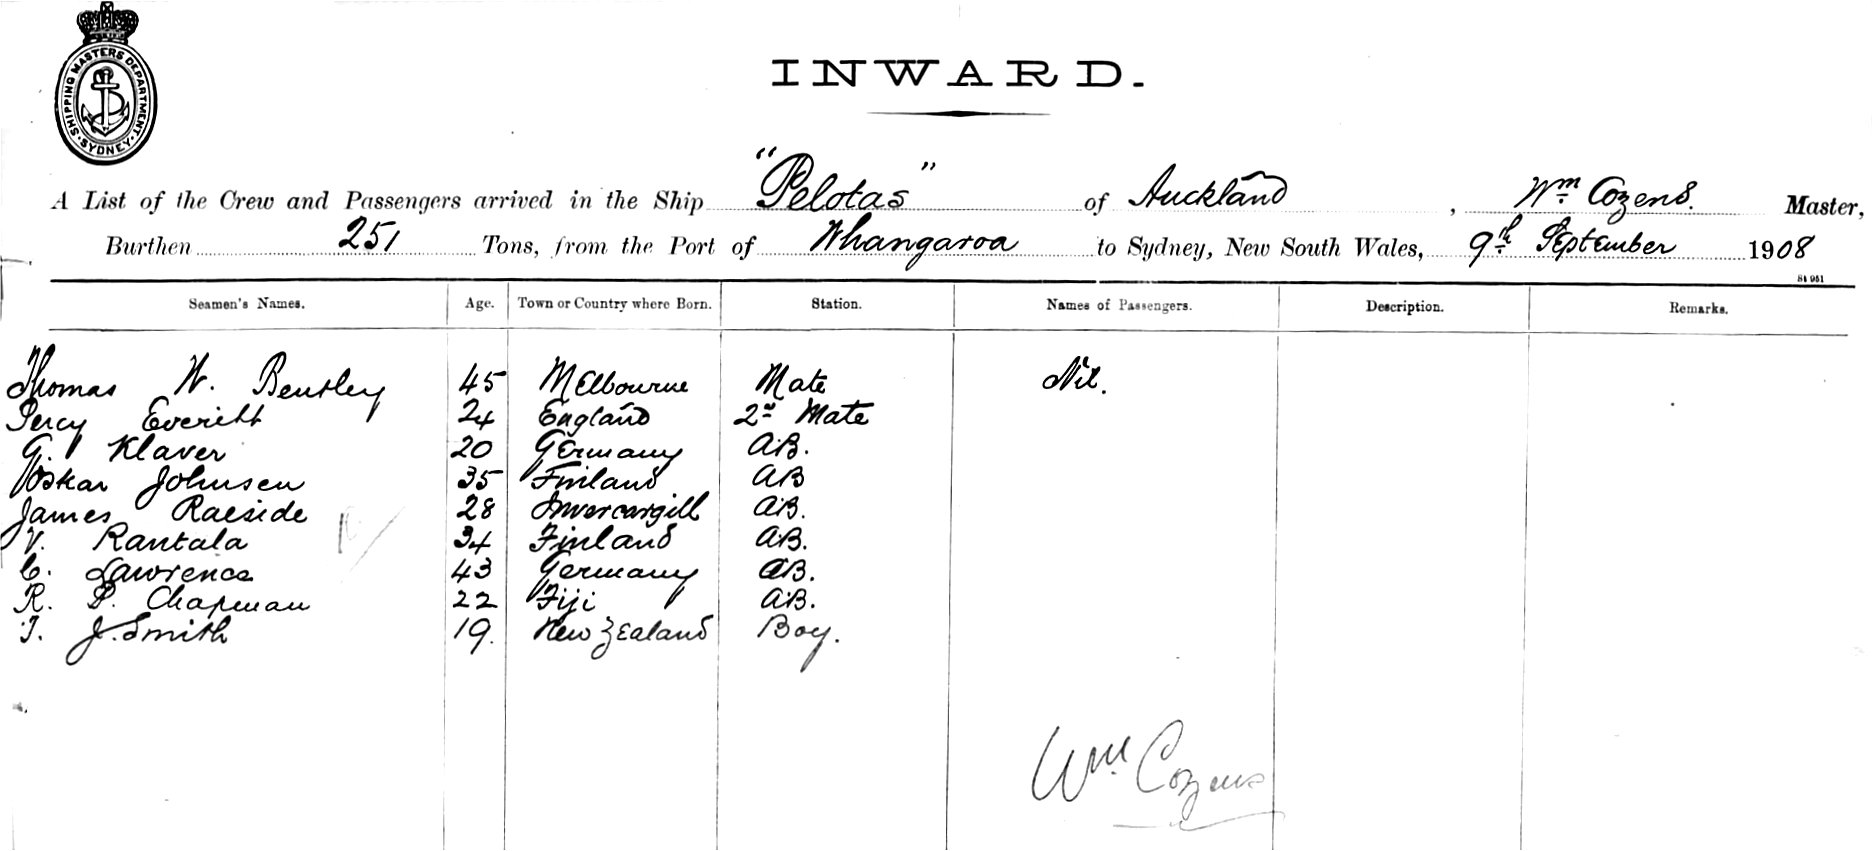 SHIPPING MASTERS DEPARTMENT. SYDNEY
INWARD.
A List of the Crew and Passengers arrived in the Ship "Pelotas" of Auckland, Wm Cozens. Master,
Burthen 251 Tons, from the Port of Whangaroa to Sydney, New South Wales, 9th September 1908
St 951
Seamen's Names. Age. Town or Country where Born. Station. Names of Passengers. Description. Remarks.
Thomas W. Bentley 45 Melbourne Mate Nil.
Percy Everitt 24 England 2nd Mate
G. Klaver 20 Germany A.B.
Oskar Johnsen 35 Finland AB
James Raeside 28 Invercargill A.B.
V. Rantala 34 Finland A.B.
C. Lawrence 43 Germany A.B.
R. P. Chapman 22 Fiji A.B.
T. J. Smith 19. New Zealand Boy.
Wm Cozens